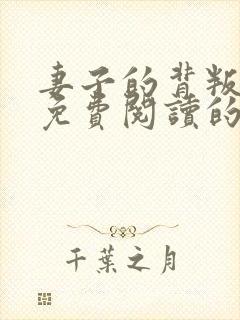 妻子的背叛
免費閱讀的
千葉之月